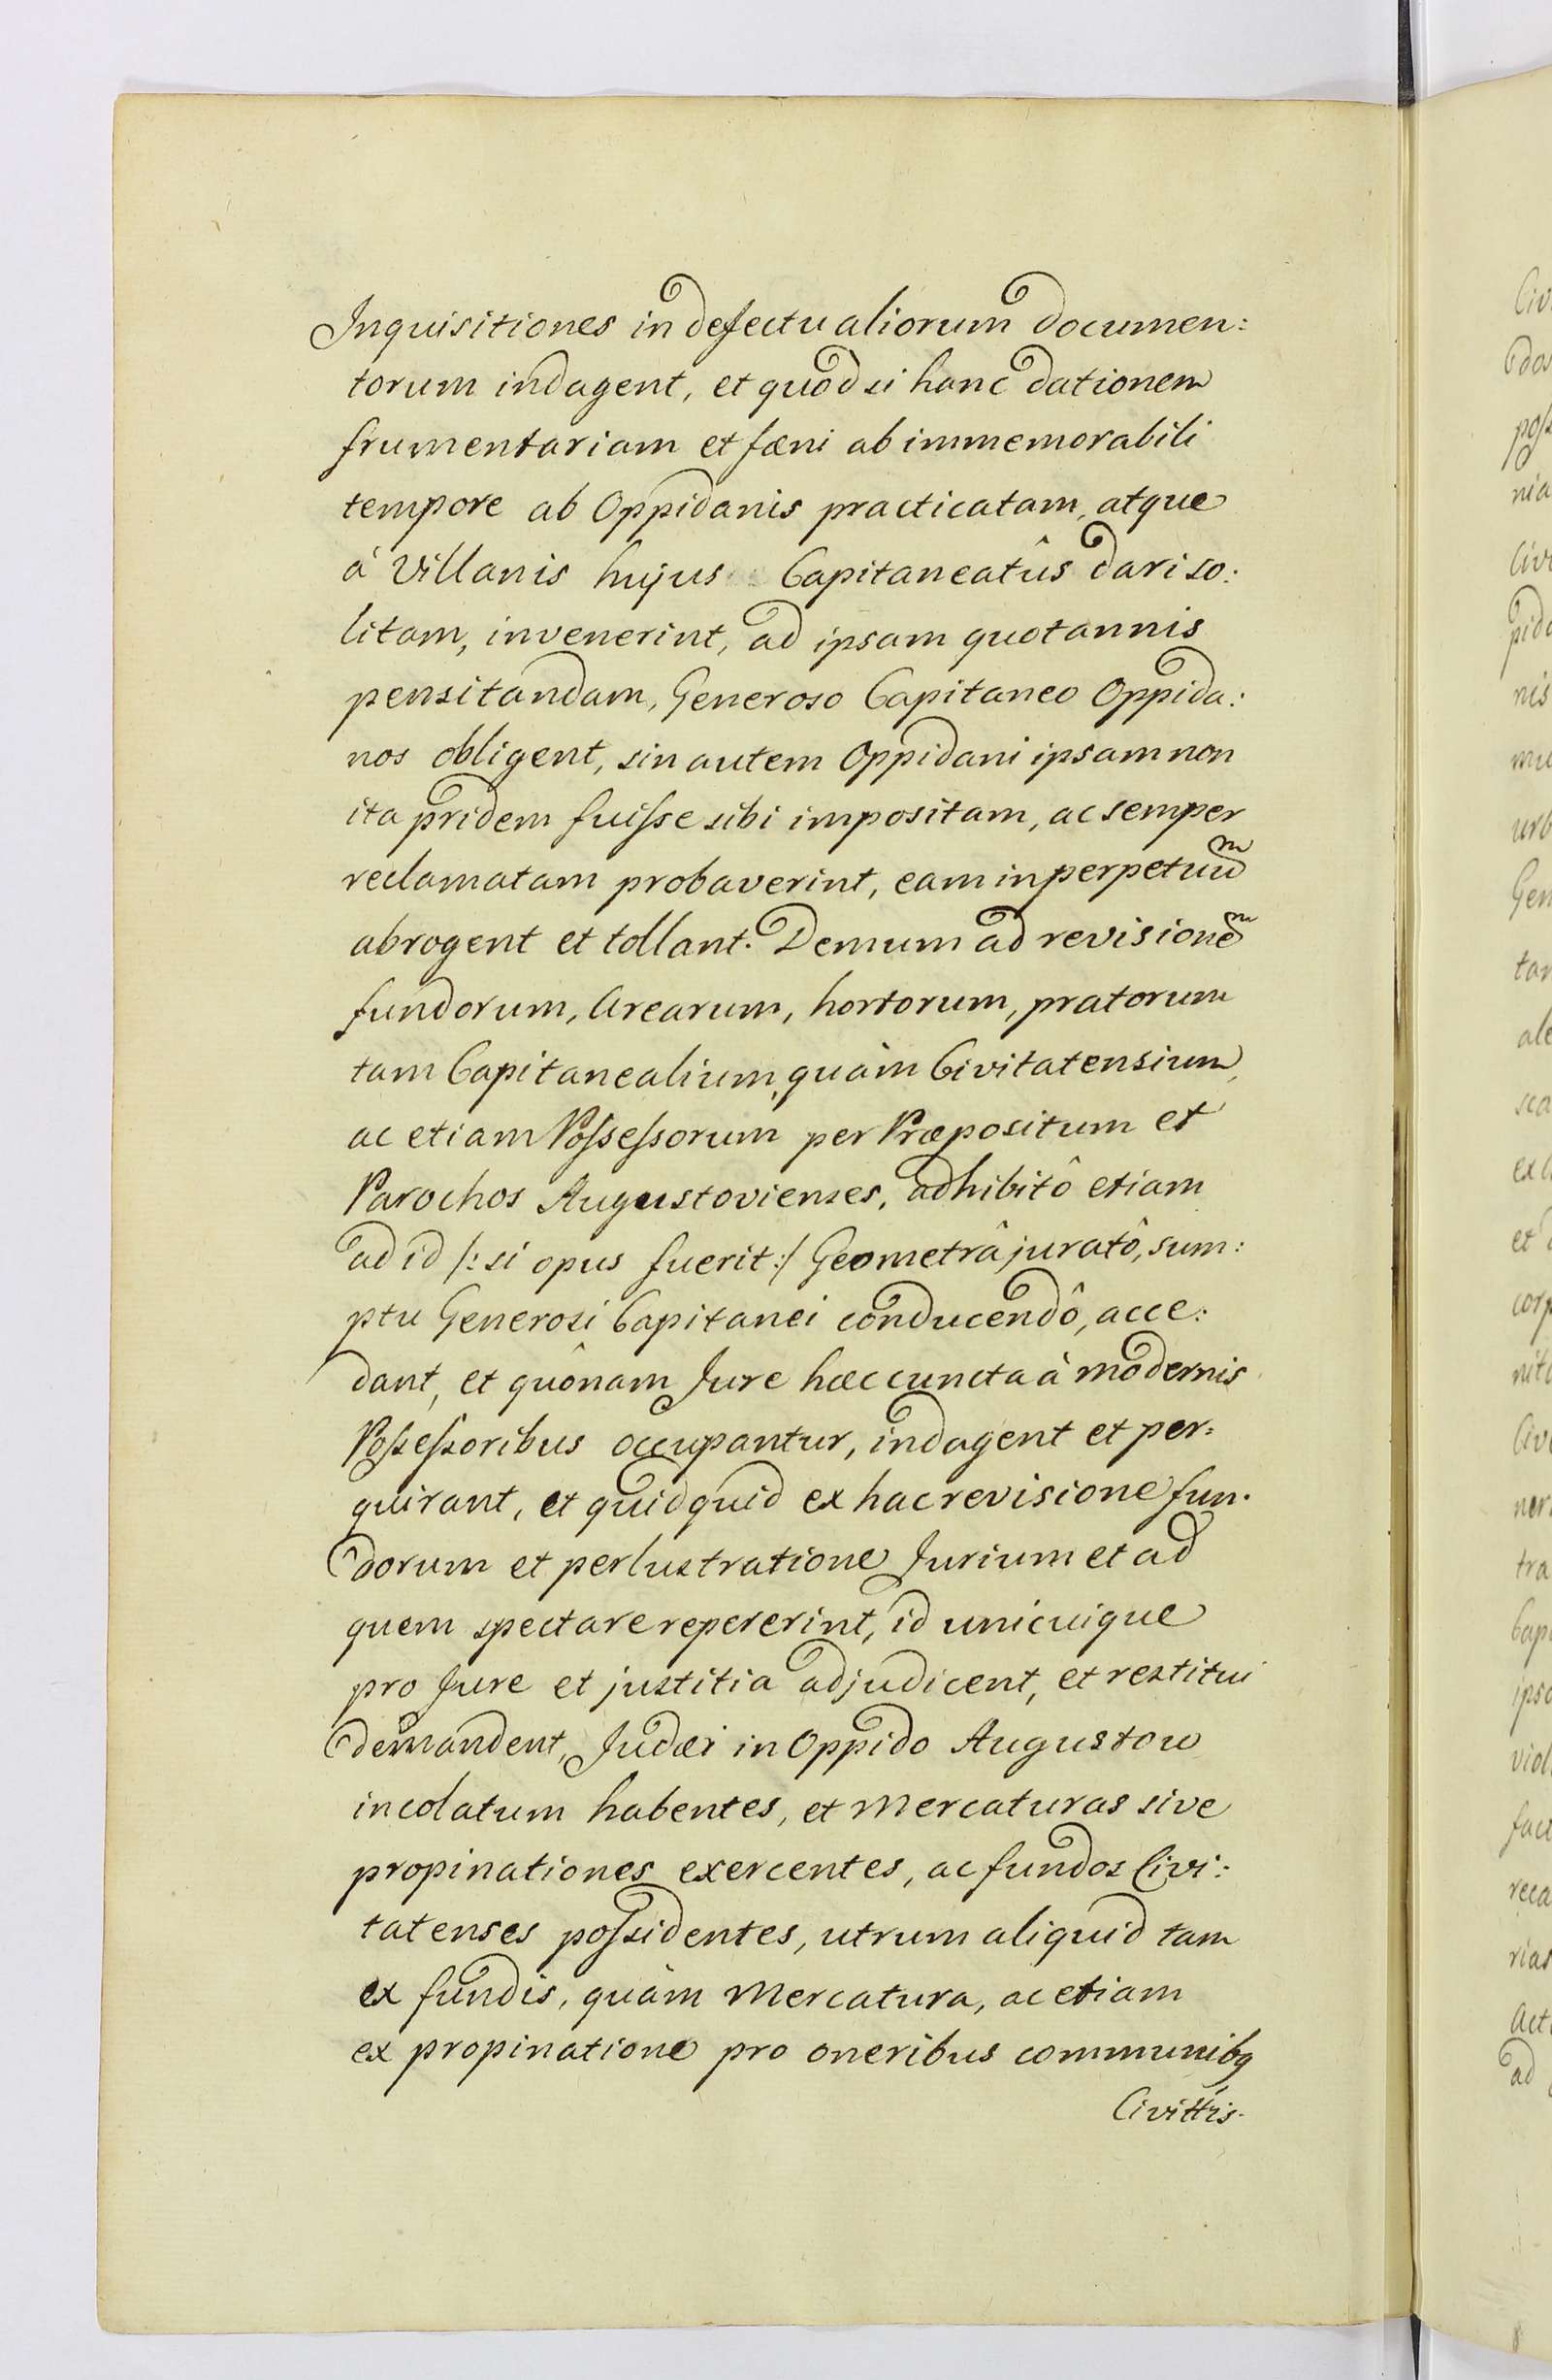 Inquisitiones in defectu aliorum documen:
torum indagent, et quod si hanc dationem
frumentariam et fæni ab immemorabili
tempore ab Oppidanis practicatam, atque
à Villanis hujus Capitaneatûs dari so:
litam, invenerint, ad ipsam quotannis
pensitandam, Generoso Capitaneo Oppida:
nos obligent, sin autem Oppidani ipsam non
ita pridem fuiſse sibi impositam, ac semper
reclamatam probaverint, eam in perpetuuᵐ
abrogent et tollant. Demum ad revisioneᵐ
fundorum, Arearum, hortorum, pratorum
tam Capitanealium, quàm Civitatensium,
ac etiam Poſseſsorum per Præpositum et
Parochos Augustovienses, adhibitô etiam
ad id /: si opus fuerit :/ Geometrâ juratô, sum:
ptu Generosi Capitanei conducendô, acce:
dant, et quônam Jure hæc cuncta à modernis
Poſseſsoribus occupantur, indagent et per:
quirant, et quidquid ex hac revisione fun:
dorum et perlustratione Jurium et ad
quem spectare repererint, id unicuique
pro Jure et justitia adjudicent, et restitui
demandent, Judæi in Oppido Augustow
incolatum habentes, et Mercaturas sive
propinationes exercentes, ac fundos Civi:
tatenses poſsidentes, utrum aliquid tam
ex fundis, quàm Mercatura, ac etiam
ex propinatione pro oneribus communibq
Civittis.